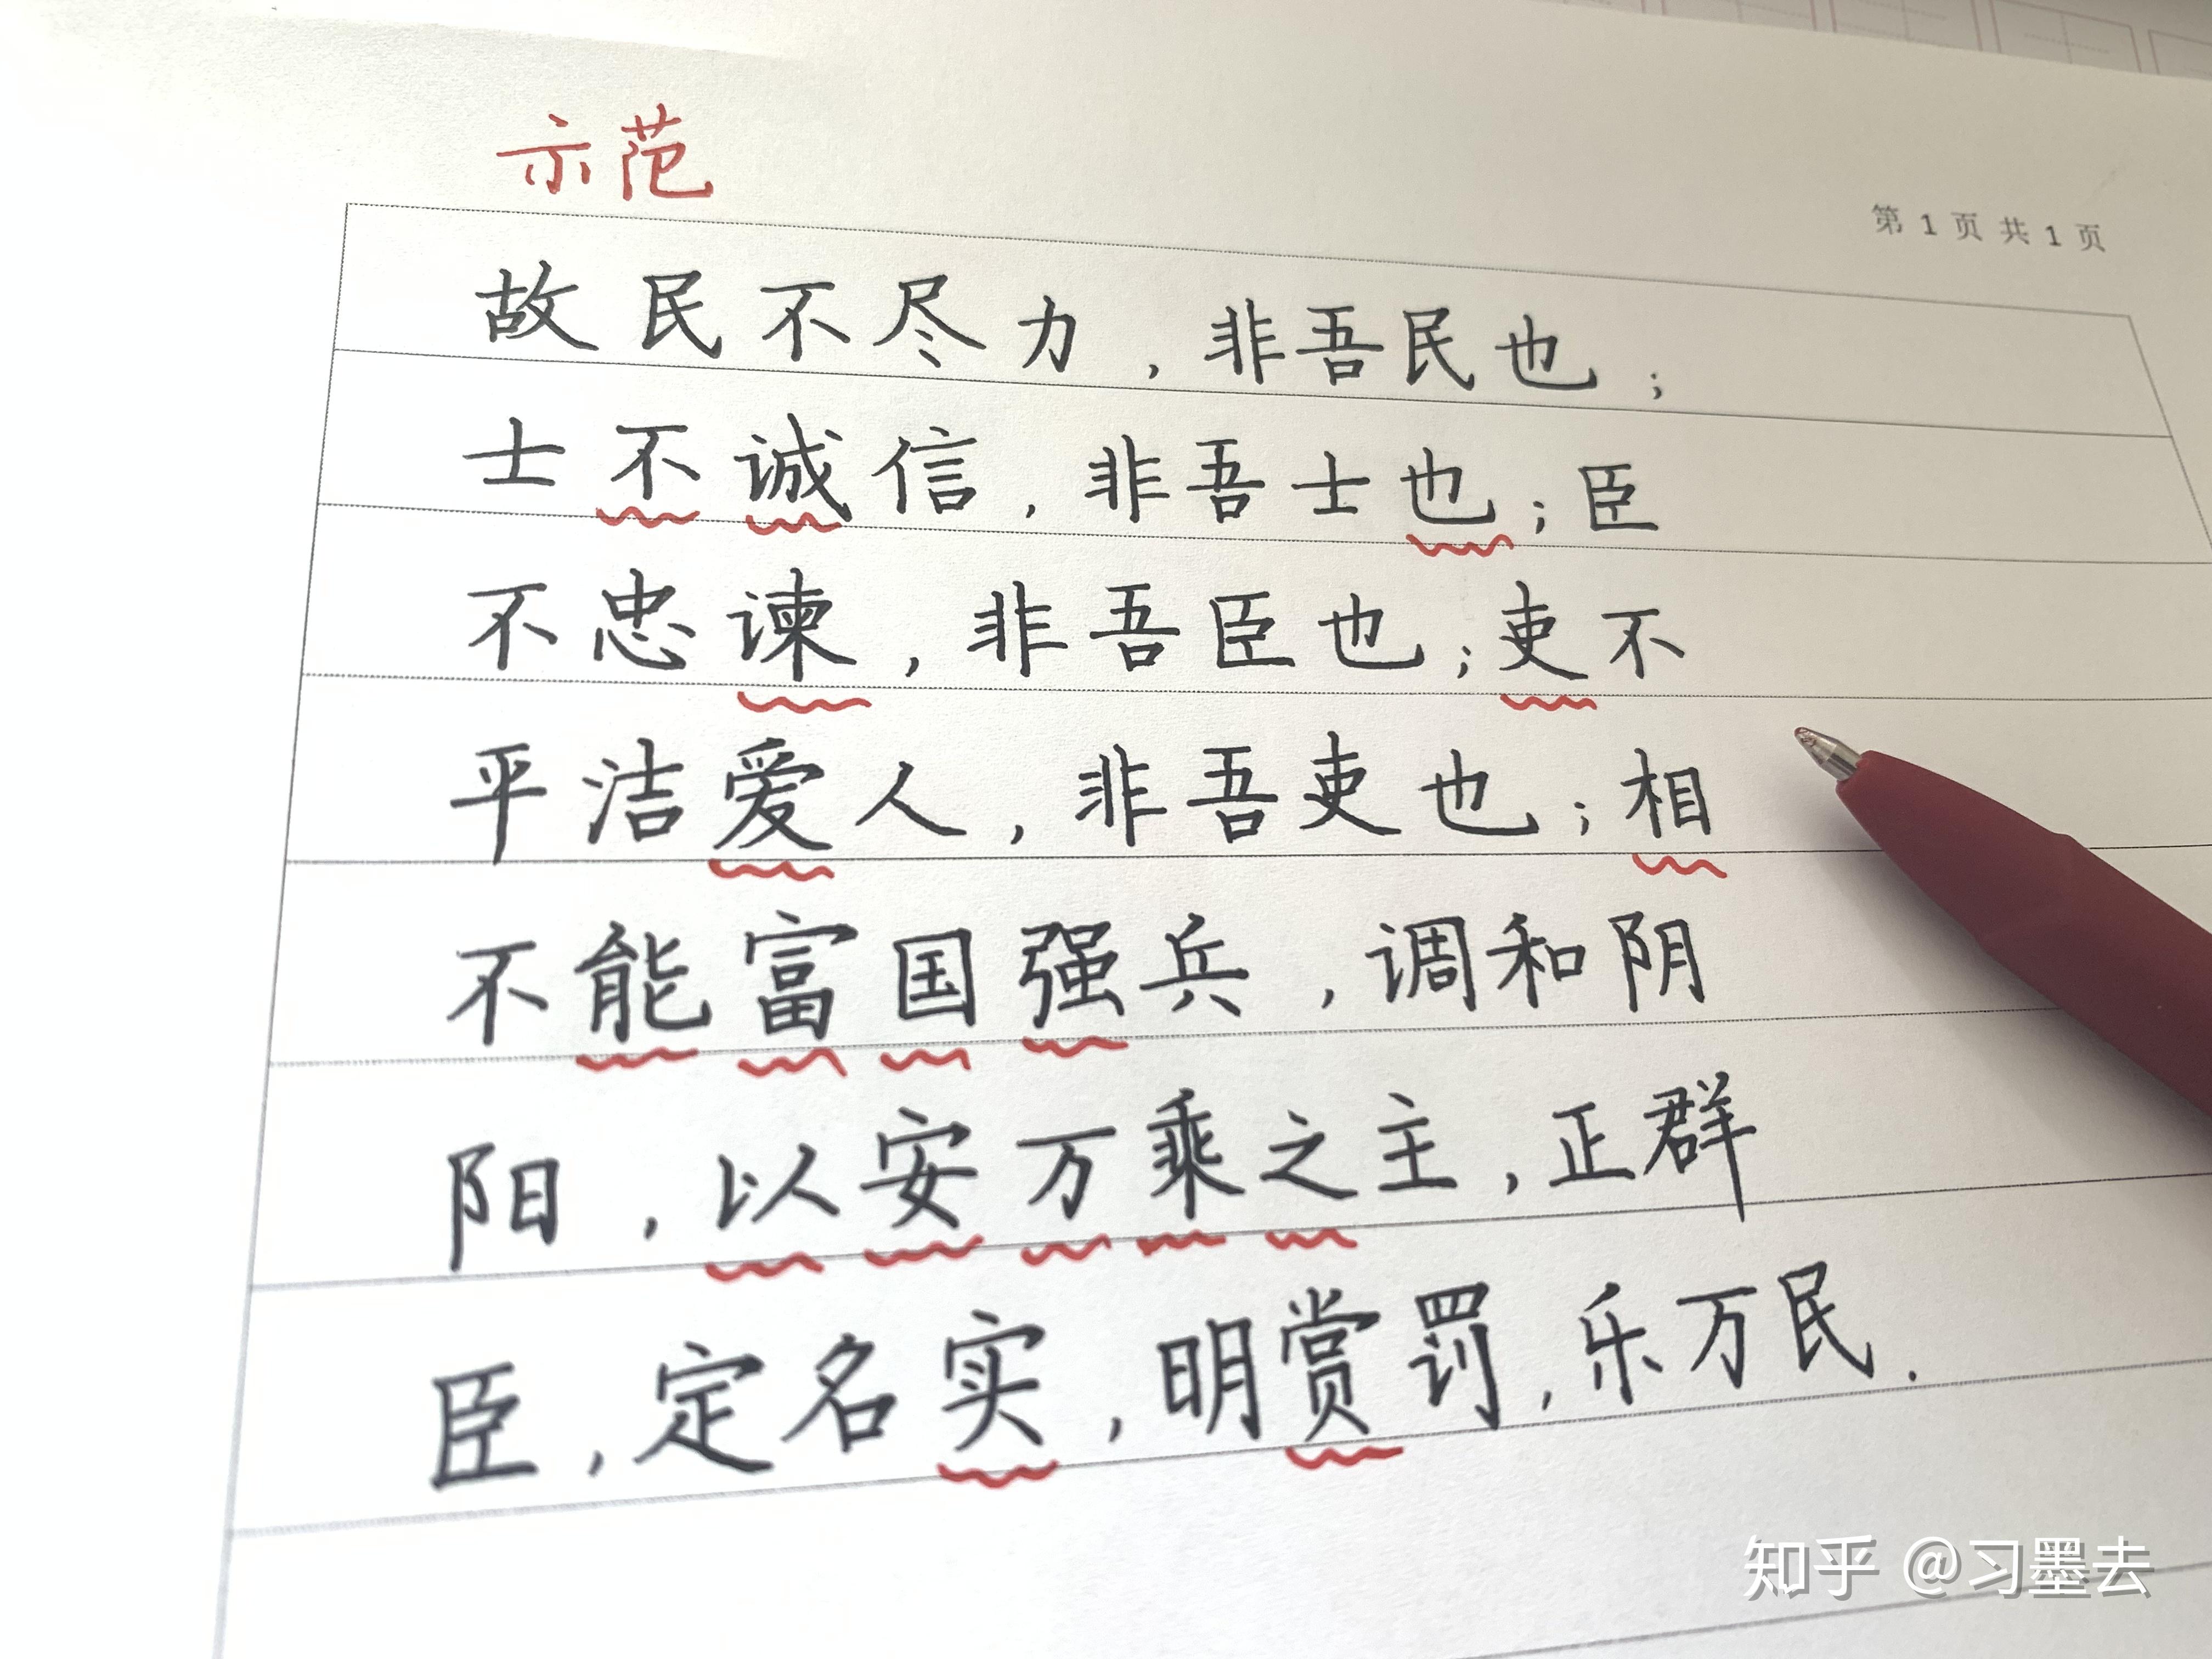 示范
第 1 页 共 1 页
故民不尽力，非吾民也；
士不诚信，非吾士也；臣
不忠谏，非吾臣也；吏不
平洁爱人，非吾吏也；相
不能富国强兵，调和阴
阳，以安万乘之主，正群
臣，定名实，明赏罚，乐万民.
知乎 @习墨去